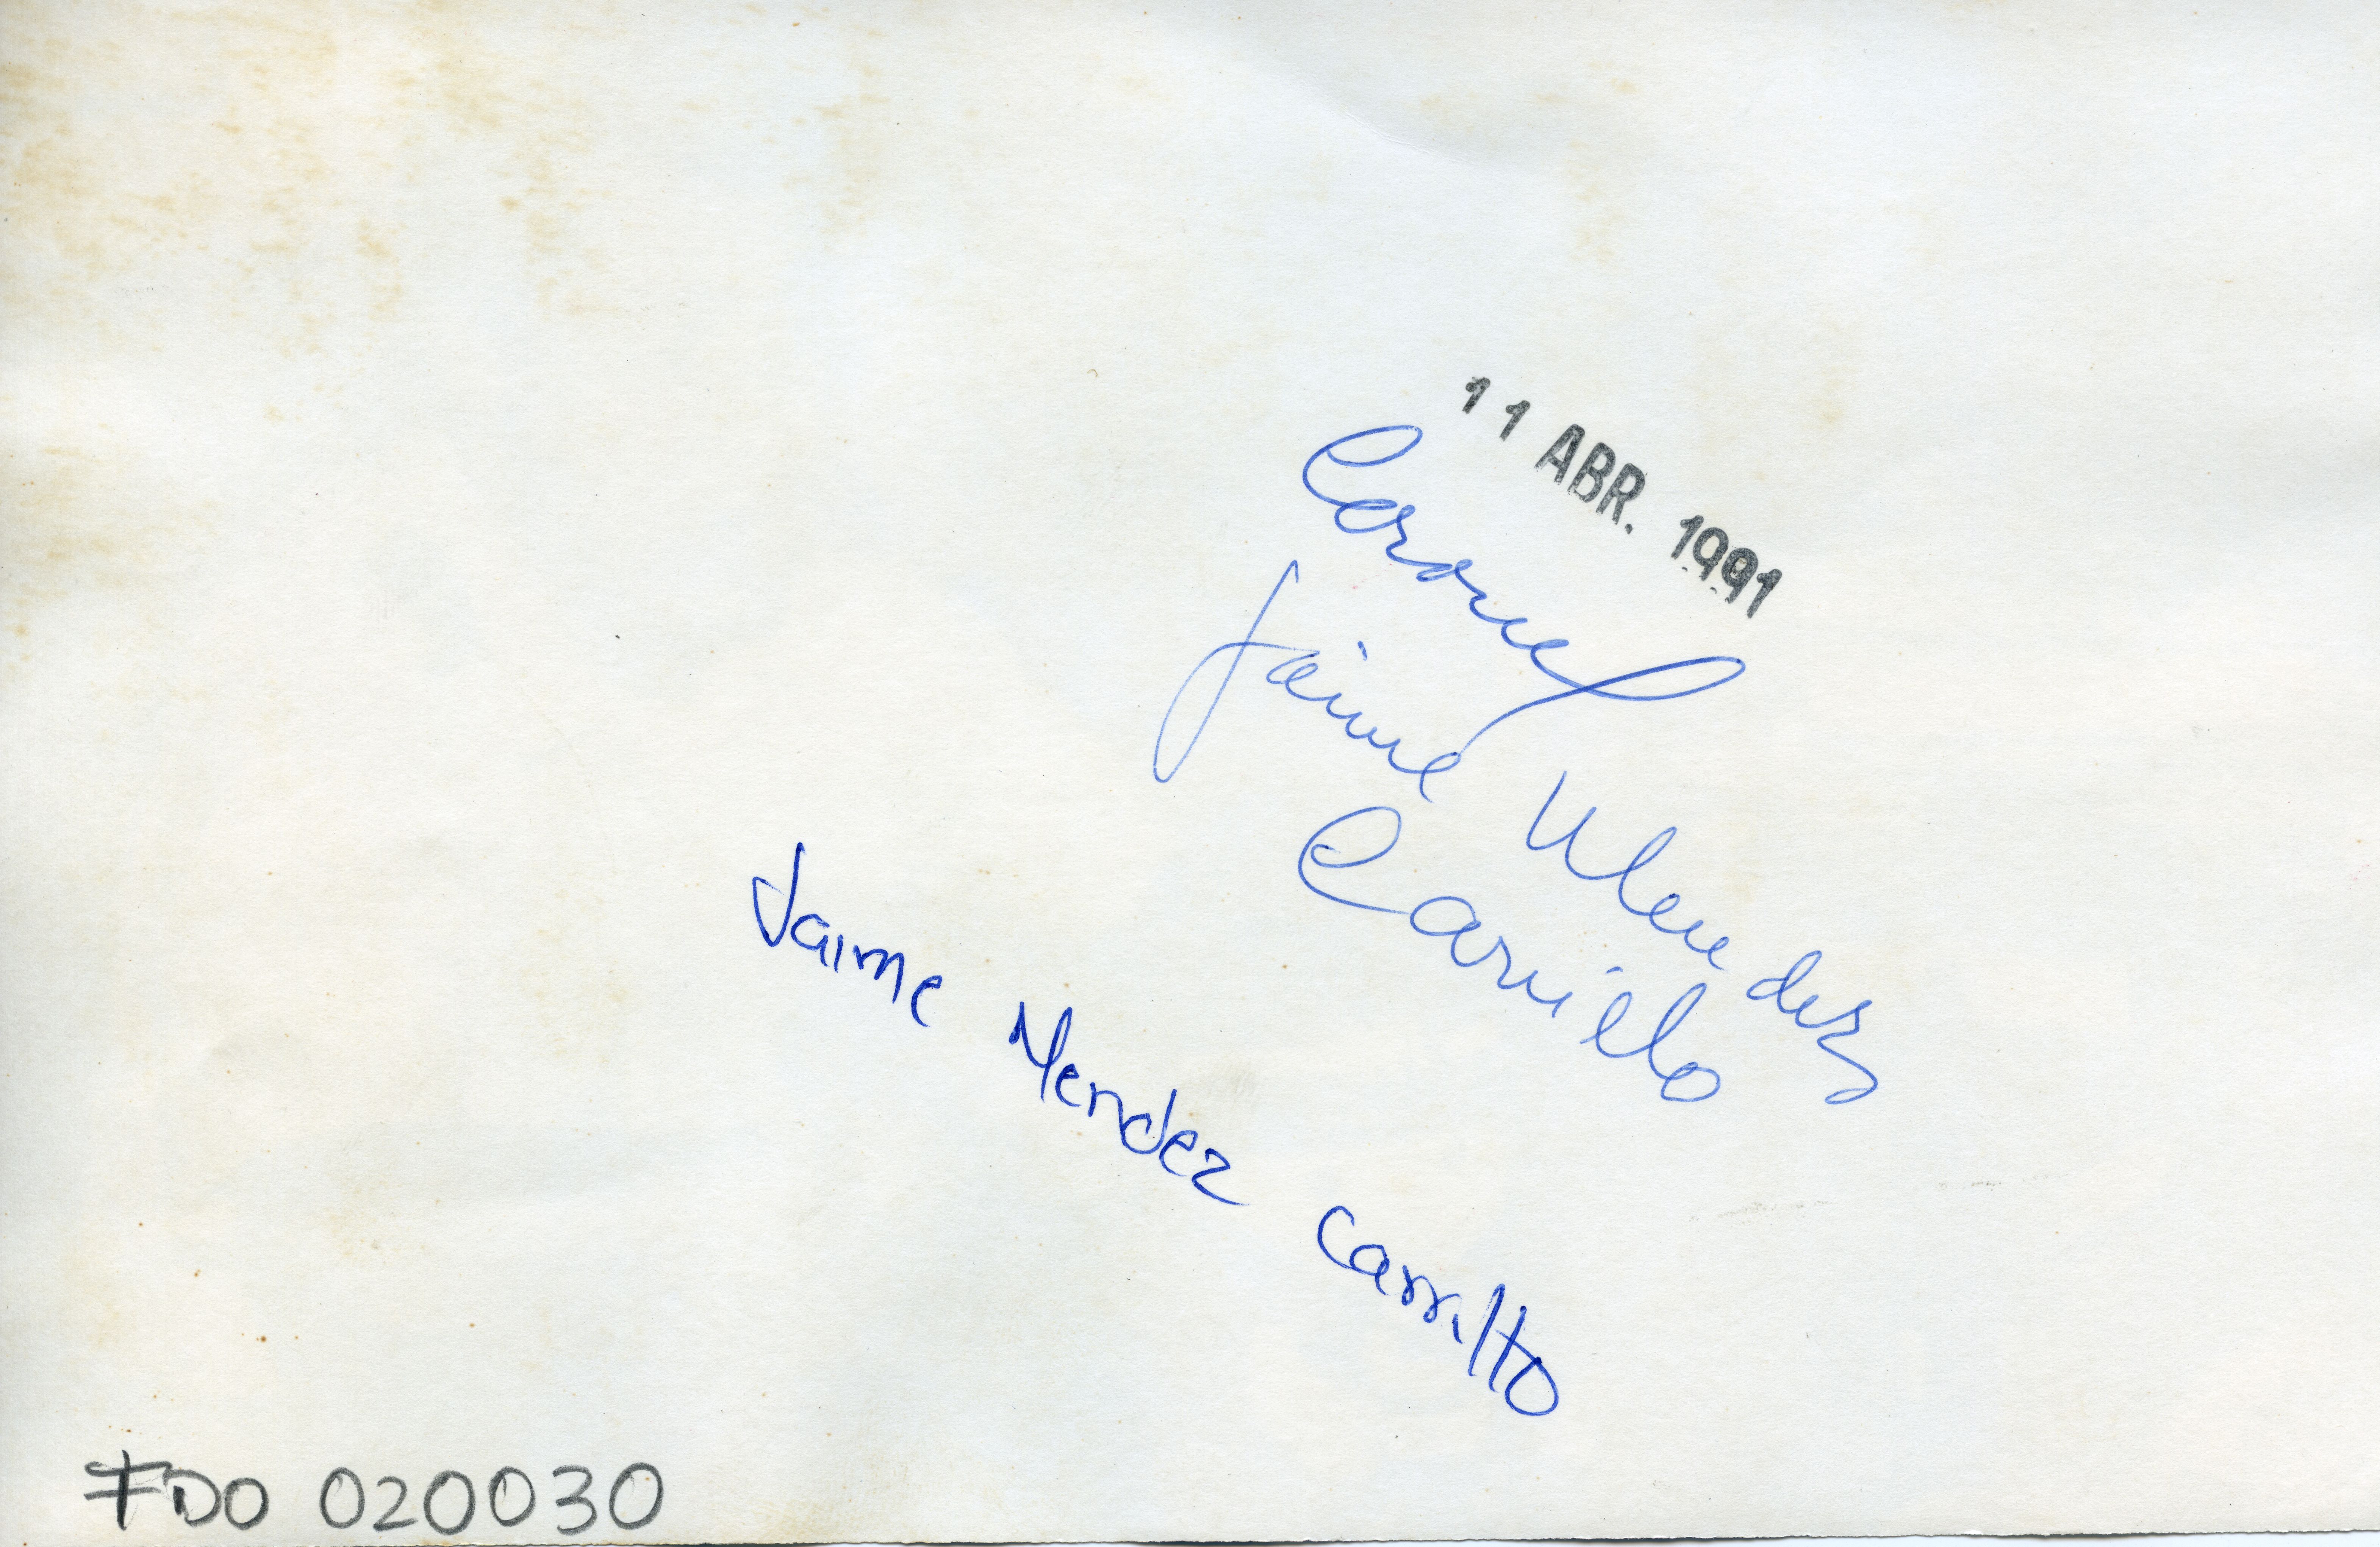 11 ABR. 1991
Coronel
Jaime Mendez
Carrillo
Jaime Mendez Carrillo
FDO 020030